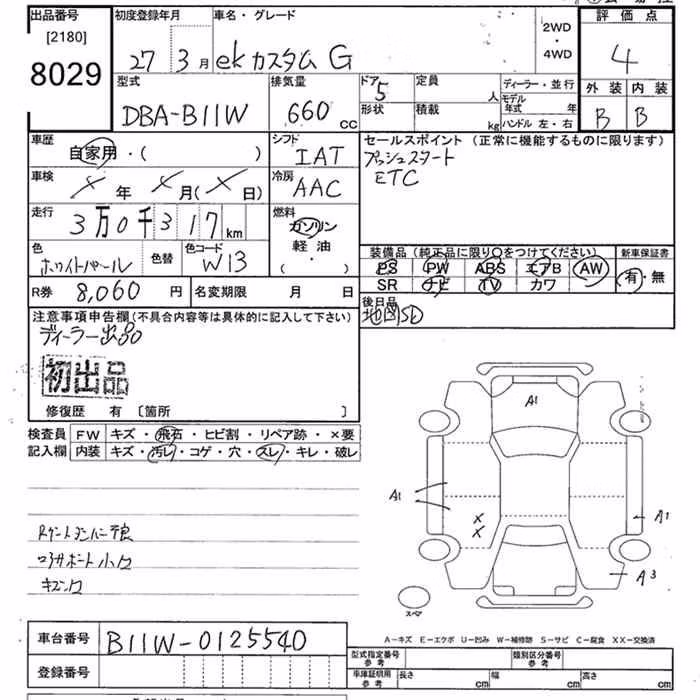 出品番号
[2180]
8029
初度登録年月
27 3月
車名・グレード
ekカスタム G
2WD
・
4WD
評価点
4
外装 内装
B B
型式
DBA-B11W
排気量
660 CC
ドア 5
定員 人
形状
積載 kg
ディーラー・並行
モデル年式 年
ハンドル 左・右
車歴
自家用・( )
シフト
IAT
セールスポイント (正常に機能するものに限ります)
プッシュスタート
ETC
車検
X 年 X 月(X 日)
冷房
AAC
走行
3万0千317km
燃料
ガソリン
軽油
( ・ )
色
ホワイトパール
色替
色コード
W13
装備品(純正品に限り○をつけてください)
PS PW ABS エアB AW
SR ナビ TV カワ
新車保証書
有・無
R券 8,060 円
名変期限 月 日
後日品
地図SD
注意事項申告欄(不具合内容等は具体的に記入して下さい)
ディーラー出品
初出品
修復歴 有 〔箇所 〕
検査員
記入欄
FW キズ・飛石・ヒビ割・リペア跡・×要
内装 キズ・汚レ・コゲ・穴・スレ・キレ・破レ
A1
A1
X
X
A1
A3
スペア
コアサポート小
A−キズ E−エクボ U−凹み W−補修跡 S−サビ C−腐食 XX−交換済
車台番号 B11W-0125540
登録番号
型式指定番号
参考
類別区分番号
参考
車庫証明用
参考
長さ cm 幅 cm 高さ cm